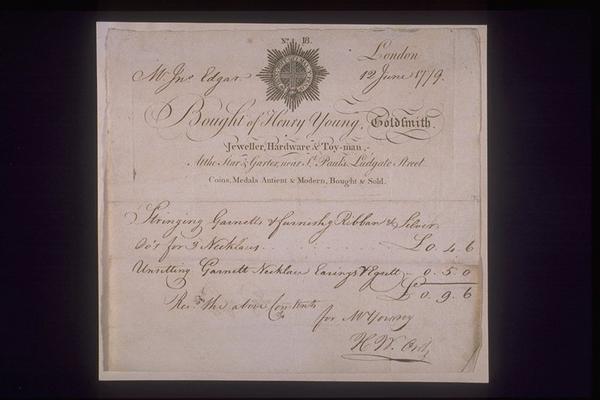 No. 18.
London
Mr. Jno. Edgar 12 June 1779.
Bought of Henry Young, Goldsmith.
Jeweller, Hardware & Toy-man,
At the Star & Garter, near St. Paul's, Ludgate Street
Coins, Medals Antient & Modern, Bought & Sold.
Stringing Garnetts & furnishg Ribban & Silver
for 3 Necklaus £0. 4. 6
Unsetting Garnett Necklace Earings 0. 5. 0
£0. 9. 6
Recd. the above Contents
for Mr Young
H W. Ord